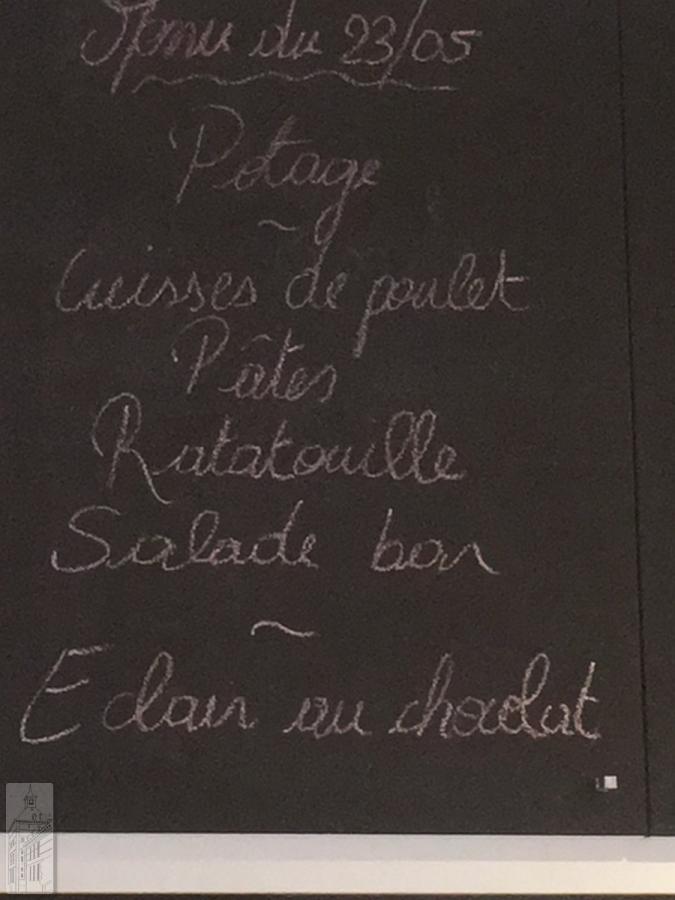 Menu du 23/05
Potage
~
Cuisses de poulet
Pâtes
Ratatouille
Salade bar
~
Eclair au chocolat